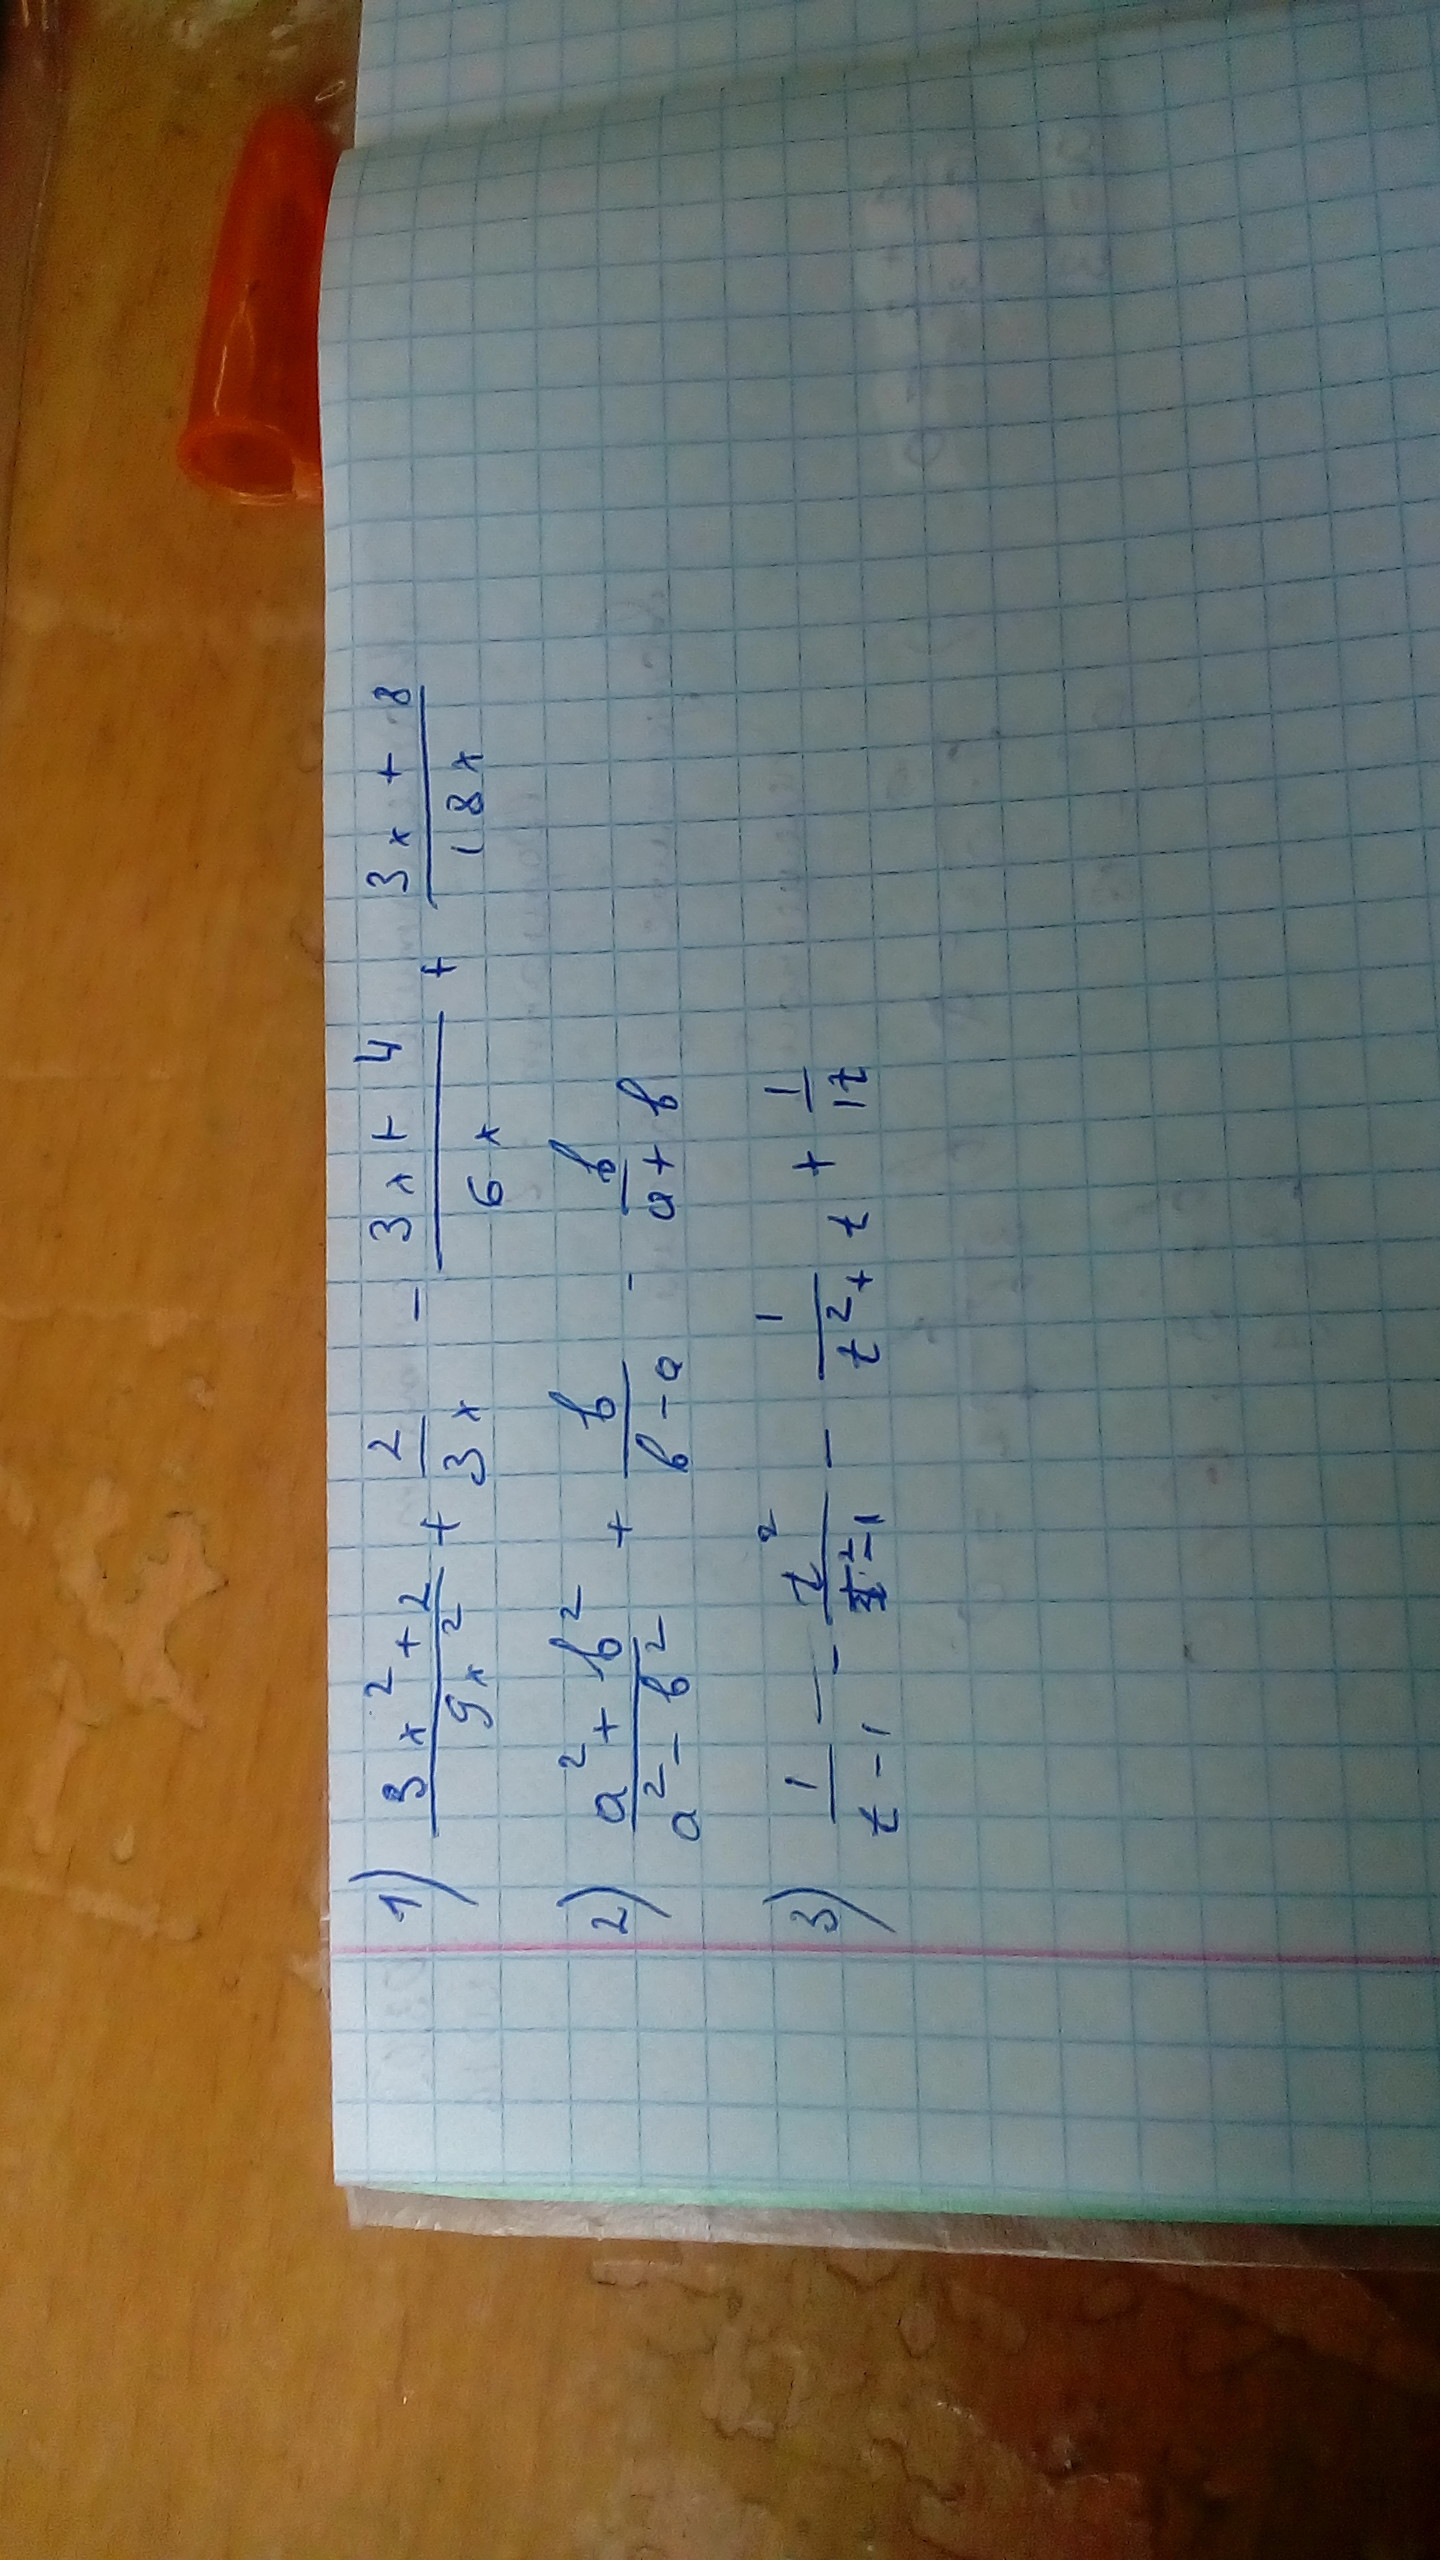 1) (3x² + 2)/(9x²) + 2/(3x) − (3x + 4)/(6x) + (3x + 8)/(18x)
2) (a² + b²)/(a² − b²) + b/(b − a) − b/(a + b)
3) 1/(t − 1) − t²/(t² − 1) − 1/(t² + t) + 1/(1t)